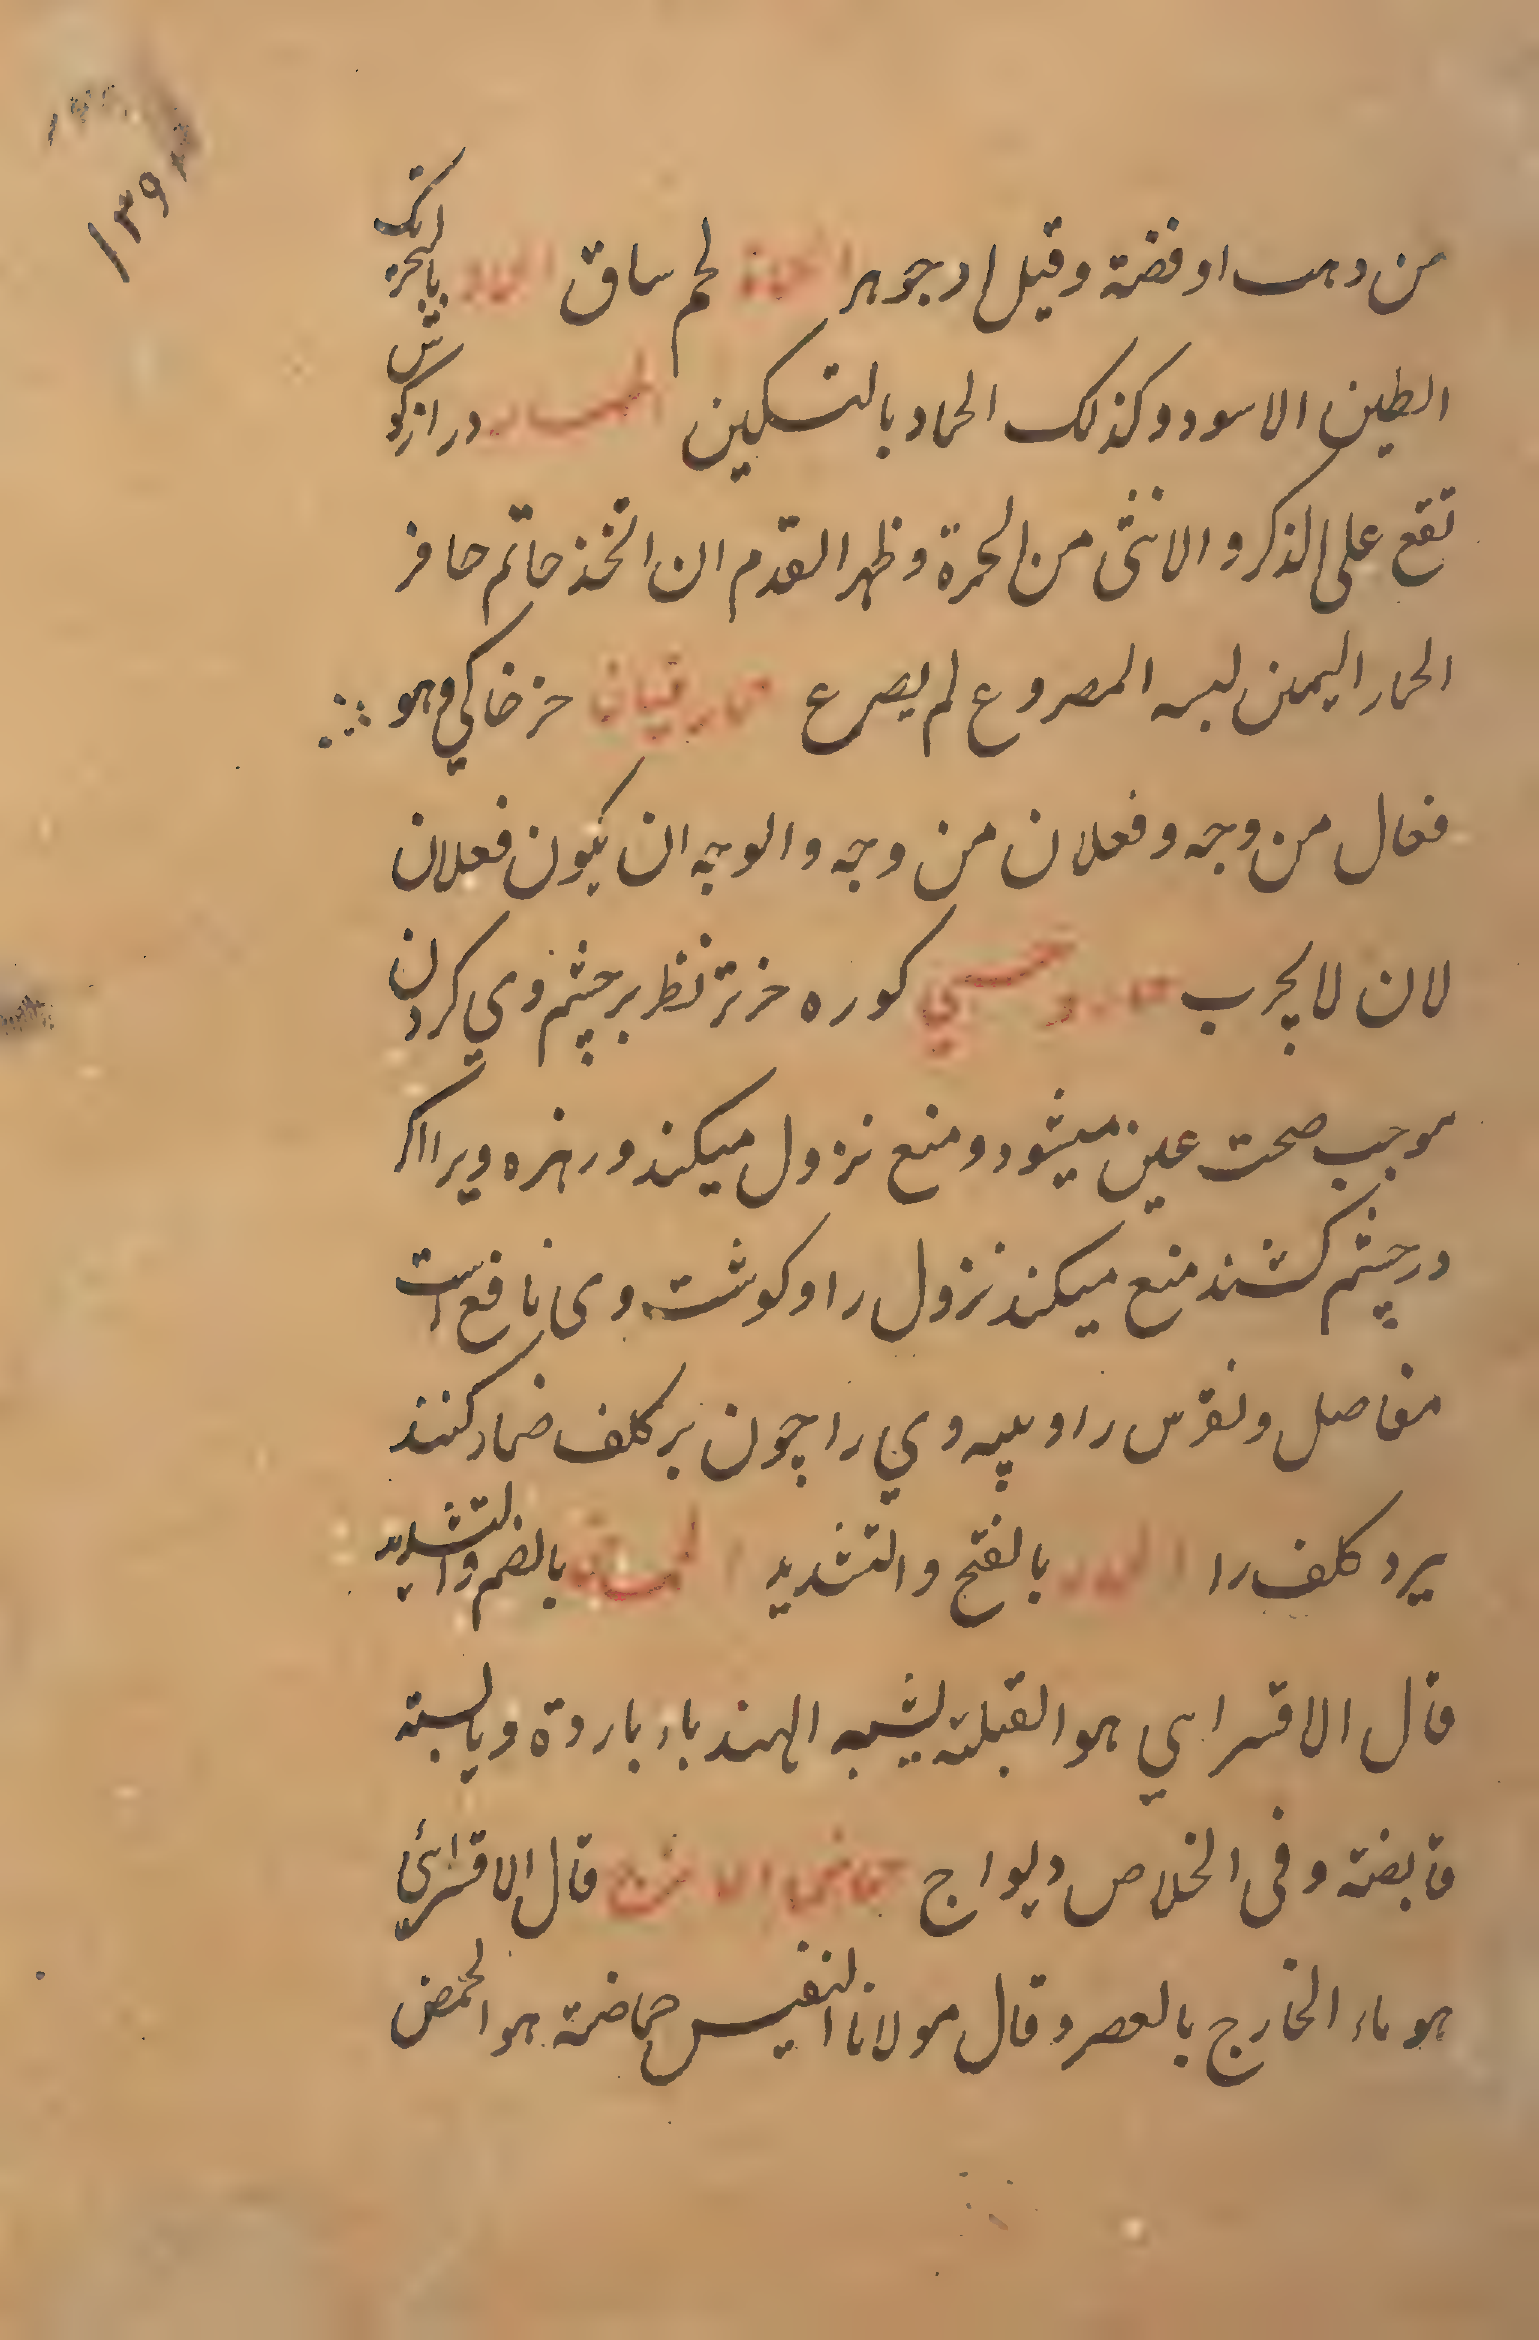 ۱۳۹
من دهب او فضة و قیل او جوهر الحماة لحم ساق الحماد بالتحریک
الطین الاسود و کذلک الحماد بالتسکین الحمار دراز گوش
تقع علی الذکر و الانثی من الحمرة و ظهر القدم ان اتخذ حاتم حافر
الحمار الیمین لبسه المصروع لم یصرع حمار قبان خز خاکی وهو
فعال من وجه و فعلان من وجه و الوجه ان یکون فعلان
لان لا یجرب حمار وحشی کوره خر تر نظر بر چشم وی کردن
موجب صحت عین میشود و منع نزول میکند و زهره ویرا اکر
در چشم کشند منع میکند نزول را و کوشت وی نافع است
مفاصل و نقرس را و پیه وی را چون بر کلف ضماد کنند
یرد کلف را الحمار بالفتح و التشدید الحماض بالضم و التشدید
قال الاقسرایی هو البقلته یشبه الهندباء باردة و یابسته
قابضته و فی الخلاص دیواج حماض الاترج قال الاقسرائی
هو ماء الخارج بالعصر و قال مولانا النفیس حماضة هو الحمض